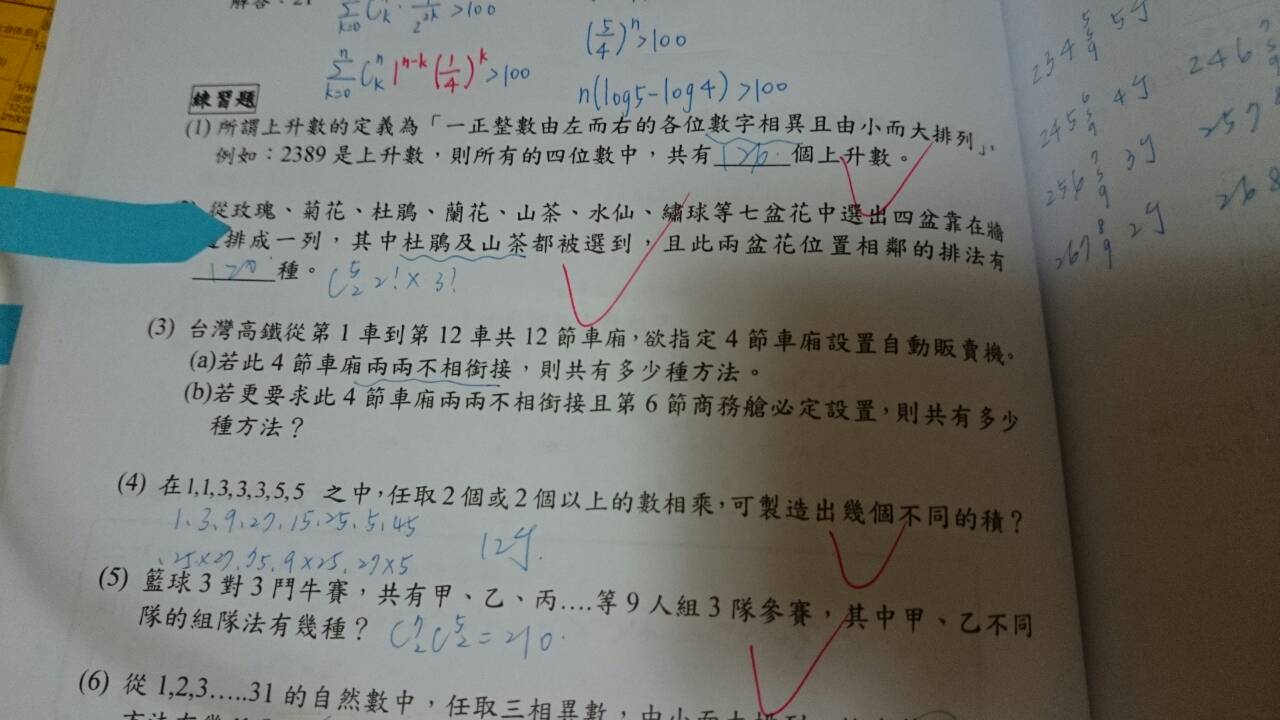 解答：21
∑_{k=0} C_k^n · 1/2^{2k} >100
(5/4)^n >100
∑_{k=0}^n C_k^n 1^{n-k} (1/4)^k >100
n(log5-log4) >100
練習題
(1) 所謂上升數的定義為「一正整數由左而右的各位數字相異且由小而大排列」，
例如：2389 是上升數，則所有的四位數中，共有 126 個上升數。
從玫瑰、菊花、杜鵑、蘭花、山茶、水仙、繡球等七盆花中選出四盆靠在牆
排成一列，其中杜鵑及山茶都被選到，且此兩盆花位置相鄰的排法有
120 種。 C_2^5 2! × 3!
(3) 台灣高鐵從第 1 車到第 12 車共 12 節車廂，欲指定 4 節車廂設置自動販賣機。
(a)若此 4 節車廂兩兩不相銜接，則共有多少種方法。
(b)若更要求此 4 節車廂兩兩不相銜接且第 6 節商務艙必定設置，則共有多少
種方法？
(4) 在1,1,3,3,3,5,5 之中，任取2個或2個以上的數相乘，可製造出幾個不同的積？
1、3、9、27、15、25、5、45
25×27、75、9×25、27×5
12个
(5) 籃球 3 對 3 鬥牛賽，共有甲、乙、丙....等 9 人組 3 隊參賽，其中甲、乙不同
隊的組隊法有幾種？ C_2^7 C_2^5 = 210
(6) 從 1,2,3.....31 的自然數中，任取三相異數，由小而大排列
234 5 9 5个
245 6 9 4个
256 7 9 3个
267 8 9 2个
246 7
257
268